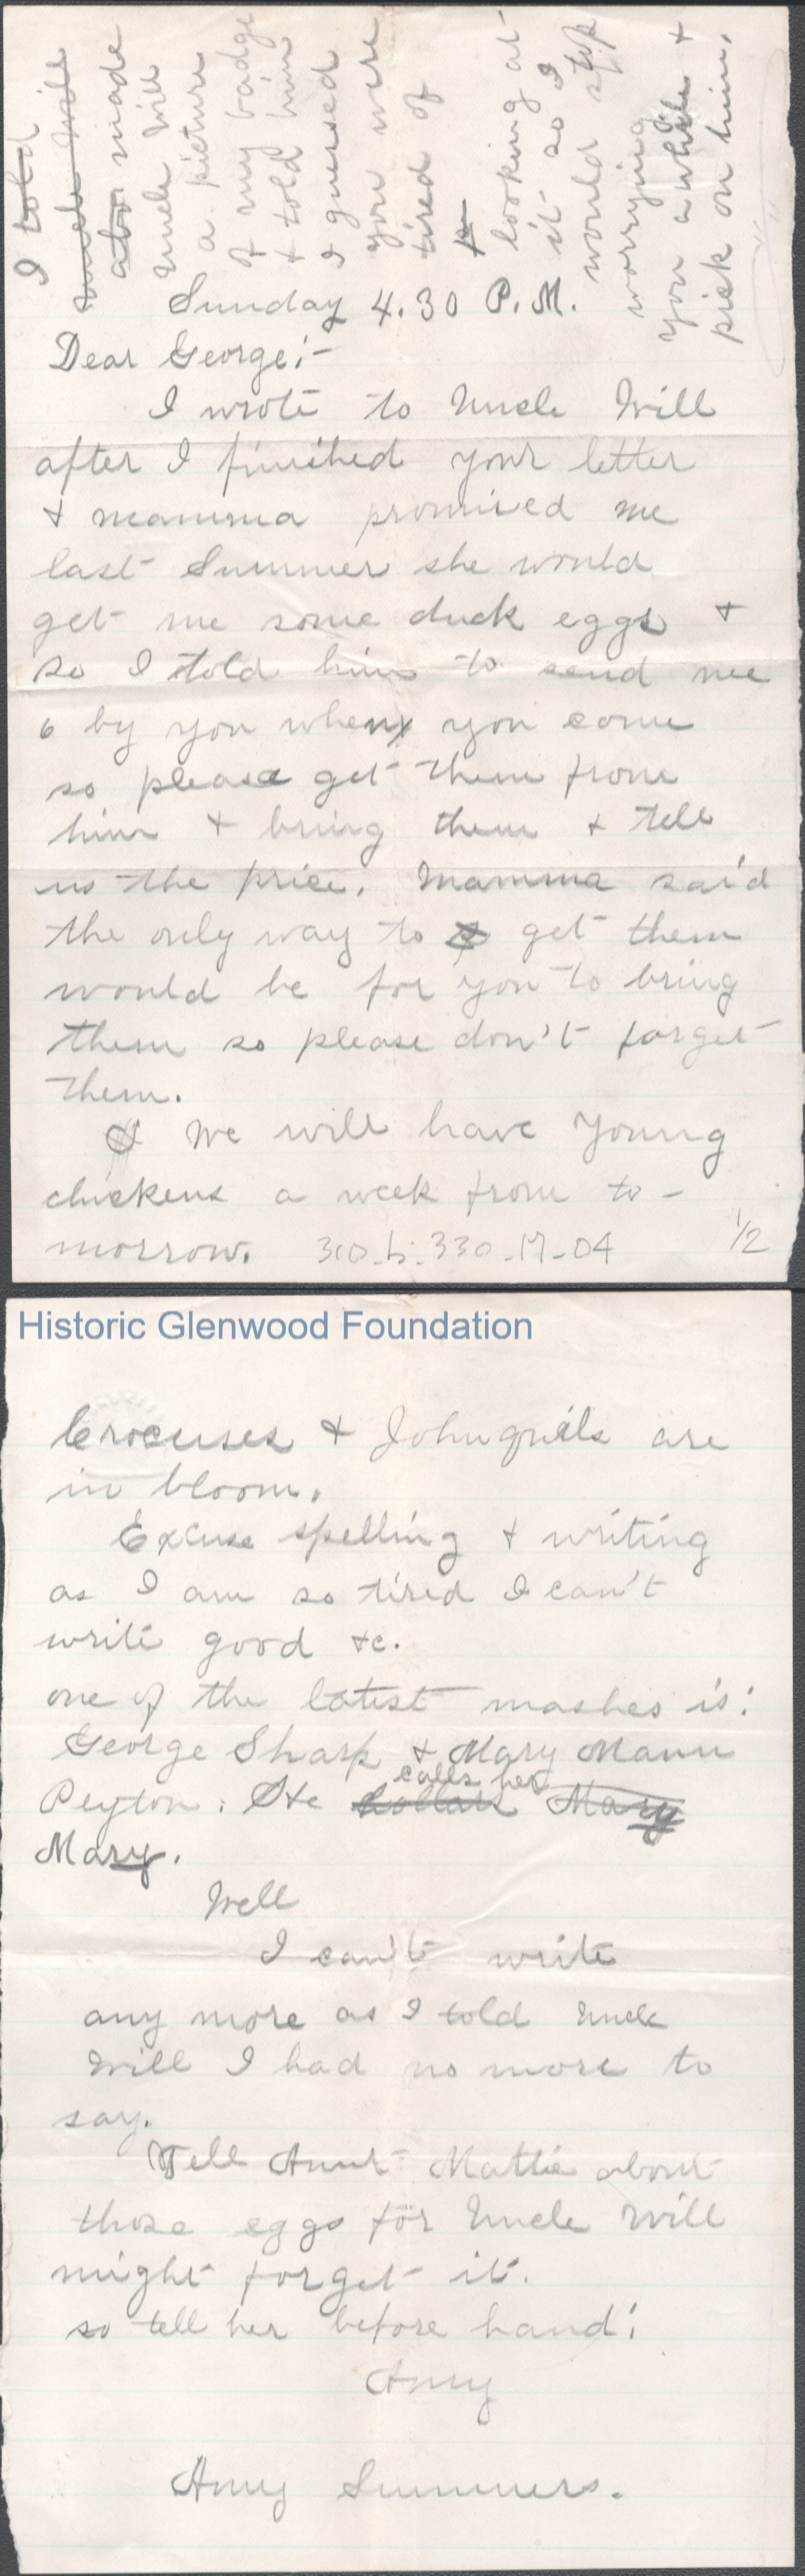 I told
Uncle Will
also made
Uncle Will
a picture
of my badge
+ told him
I guessed
you were
tired of
looking at
it so I
would stop
worrying
you a while +
pick on him.
Sunday 4.30 P.M.
Dear George:-
I wrote to Uncle Will
after I finished your letter
+ mamma promised me
last Summer she would
get me some duck eggs +
so I told him to send me
6 by you when you come
so please get them from
him + bring them + tell
us the price. Mamma said
the only way to get them
would be for you to bring
them so please don't forget
them.
We will have young
chickens a week from to-
morrow. 310-b-330-17-04 1/2
Historic Glenwood Foundation
Crocuses + Johnquils are
in bloom.
Excuse spelling + writing
as I am so tired I can't
write good +c.
one of the latest mashes is:
George Sharp + Mary Mann
Peyton. He calls her Mary
Mary.
Well
I can't write
any more as I told Uncle
Will I had no more to
say.
Tell Aunt Mattie about
those eggs for Uncle Will
might forget it.
so tell her before hand!
Amy
Amy Summers.